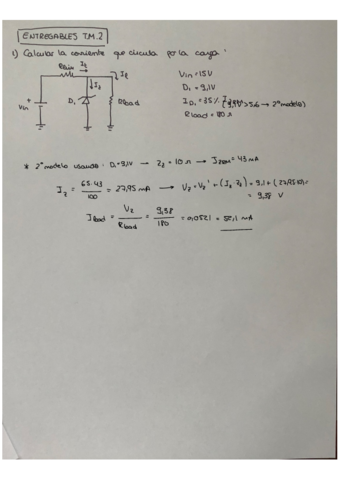 ENTREGABLES T.M.2
1) Calcular la corriente que circula por la carga:
Rlim It IL
Vin = 15V
Iz D1 = 9,1V
+ Vin D1 Rload ID1 = 35% (9,1V > 5,6 → 2º modelo)
Rload = 180 Ω
* 2º modelo usando: D1 = 9,1V → Zz = 10 Ω → = 43 mA
Iz = 65·43 / 100 = 27,95 mA → Vz = Vz' + (Iz · Zz) = 9,1 + (27,95·10) =
= 9,38 V
Iload = Vz / Rload = 9,38 / 180 = 0,0521 = 52,1 mA